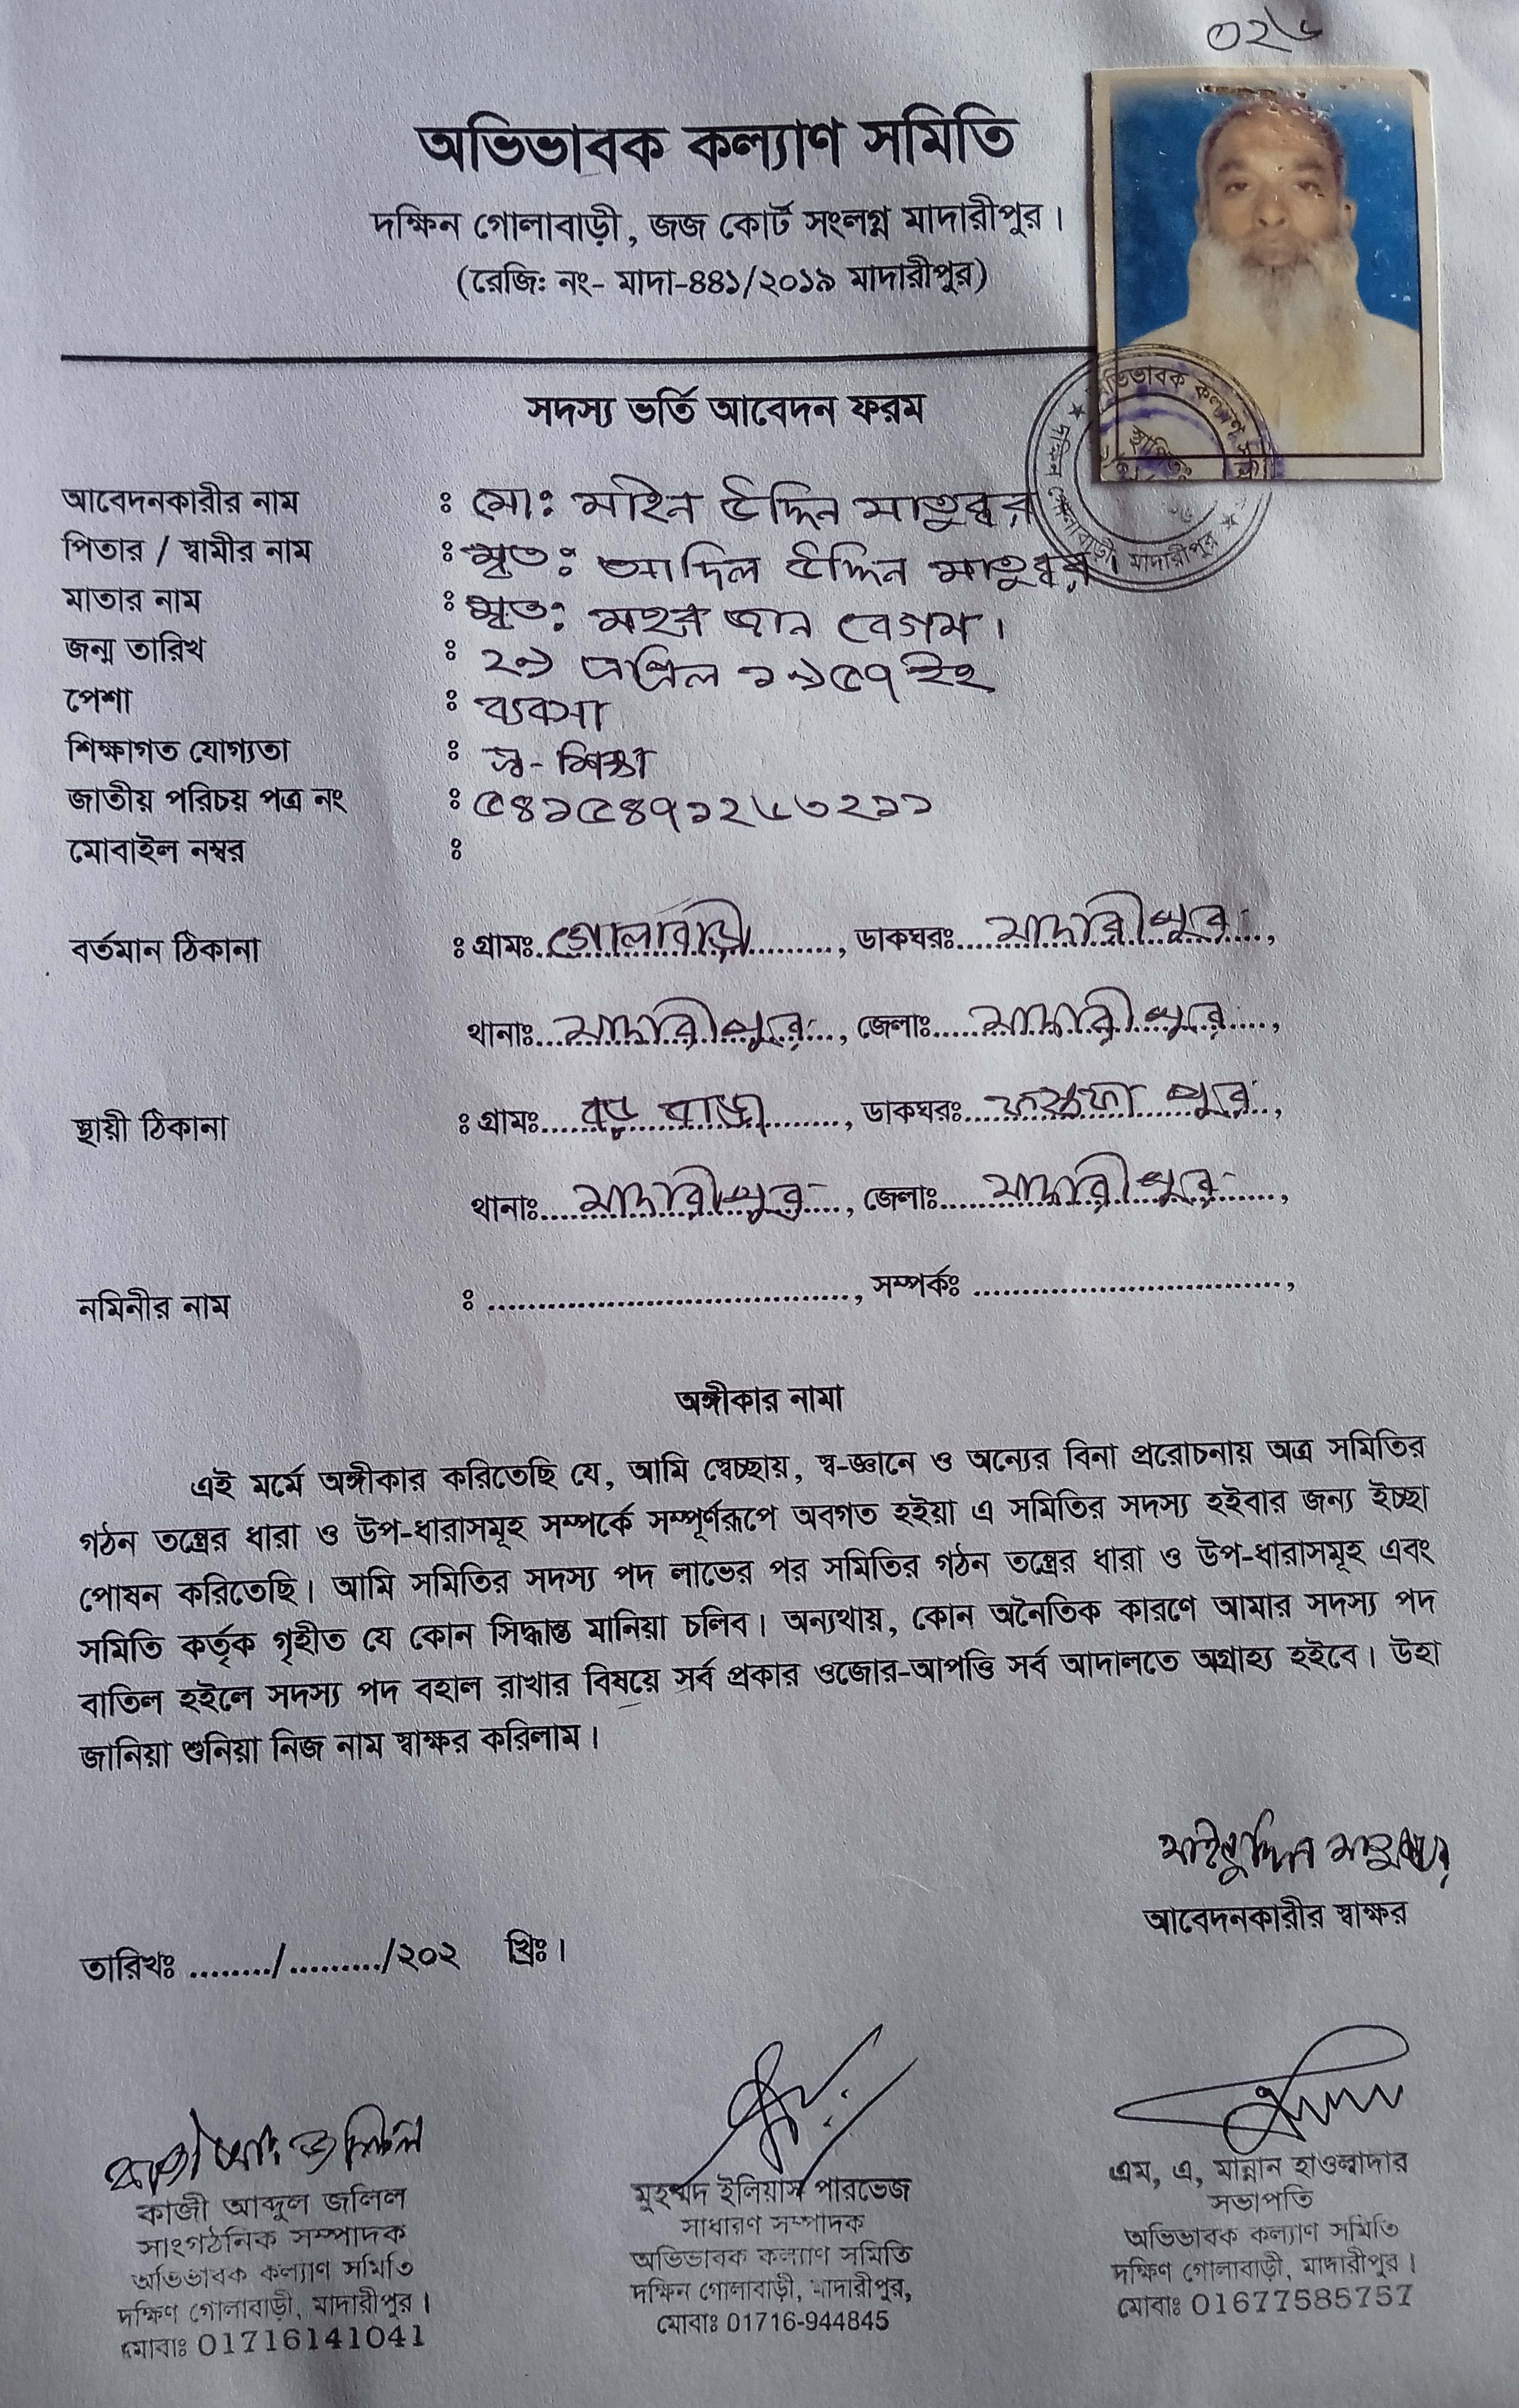 ০২৬
অভিভাবক কল্যাণ সমিতি
দক্ষিন গোলাবাড়ী, জজ কোর্ট সংলগ্ন মাদারীপুর।
(রেজি: নং- মাদা-৪৪১/২০১৯ মাদারীপুর)
সদস্য ভর্তি আবেদন ফরম
আবেদনকারীর নাম : মো: মহিন উদ্দিন মাতুব্বর
পিতার / স্বামীর নাম : মৃত: আদিল উদ্দিন মাতুব্বর।
মাতার নাম : মৃত: মহর জান বেগম।
জন্ম তারিখ : ২৯ এপ্রিল ১৯৫৭ ইং
পেশা : ব্যবসা
শিক্ষাগত যোগ্যতা : স্ব-শিক্ষা
জাতীয় পরিচয় পত্র নং : ৫৪১৫৪৭১২৬৩২১১
মোবাইল নম্বর :
বর্তমান ঠিকানা : গ্রামঃ গোলাবাড়ী, ডাকঘরঃ মাদারীপুর,
থানাঃ মাদারীপুর, জেলাঃ মাদারীপুর,
স্থায়ী ঠিকানা : গ্রামঃ বড় বাড্ডা, ডাকঘরঃ পুর,
থানাঃ মাদারীপুর, জেলাঃ মাদারীপুর,
নমিনীর নাম : ...................................., সম্পর্কঃ ................................,
অঙ্গীকার নামা
এই মর্মে অঙ্গীকার করিতেছি যে, আমি স্বেচ্ছায়, স্ব-জ্ঞানে ও অন্যের বিনা প্ররোচনায় অত্র সমিতির
গঠন তন্ত্রের ধারা ও উপ-ধারাসমূহ সম্পর্কে সম্পূর্ণরূপে অবগত হইয়া এ সমিতির সদস্য হইবার জন্য ইচ্ছা
পোষন করিতেছি। আমি সমিতির সদস্য পদ লাভের পর সমিতির গঠন তন্ত্রের ধারা ও উপ-ধারাসমূহ এবং
সমিতি কর্তৃক গৃহীত যে কোন সিদ্ধান্ত মানিয়া চলিব। অন্যথায়, কোন অনৈতিক কারণে আমার সদস্য পদ
বাতিল হইলে সদস্য পদ বহাল রাখার বিষয়ে সর্ব প্রকার ওজোর-আপত্তি সর্ব আদালতে অগ্রাহ্য হইবে। উহা
জানিয়া শুনিয়া নিজ নাম স্বাক্ষর করিলাম।
মাইনুদ্দিন মাতুব্বর
আবেদনকারীর স্বাক্ষর
তারিখঃ ......../........./২০২ খ্রিঃ।
কাজী আব্দুল জলিল
সাংগঠনিক সম্পাদক
অভিভাবক কল্যাণ সমিতি
দক্ষিণ গোলাবাড়ী, মাদারীপুর।
মোবাঃ 01716141041
মুহম্মদ ইলিয়াস পারভেজ
সাধারণ সম্পাদক
অভিভাবক কল্যাণ সমিতি
দক্ষিন গোলাবাড়ী, মাদারীপুর,
মোবাঃ 01716-944845
এম, এ, মান্নান হাওলাদার
সভাপতি
অভিভাবক কল্যাণ সমিতি
দক্ষিণ গোলাবাড়ী, মাদারীপুর।
মোবাঃ 01677585757